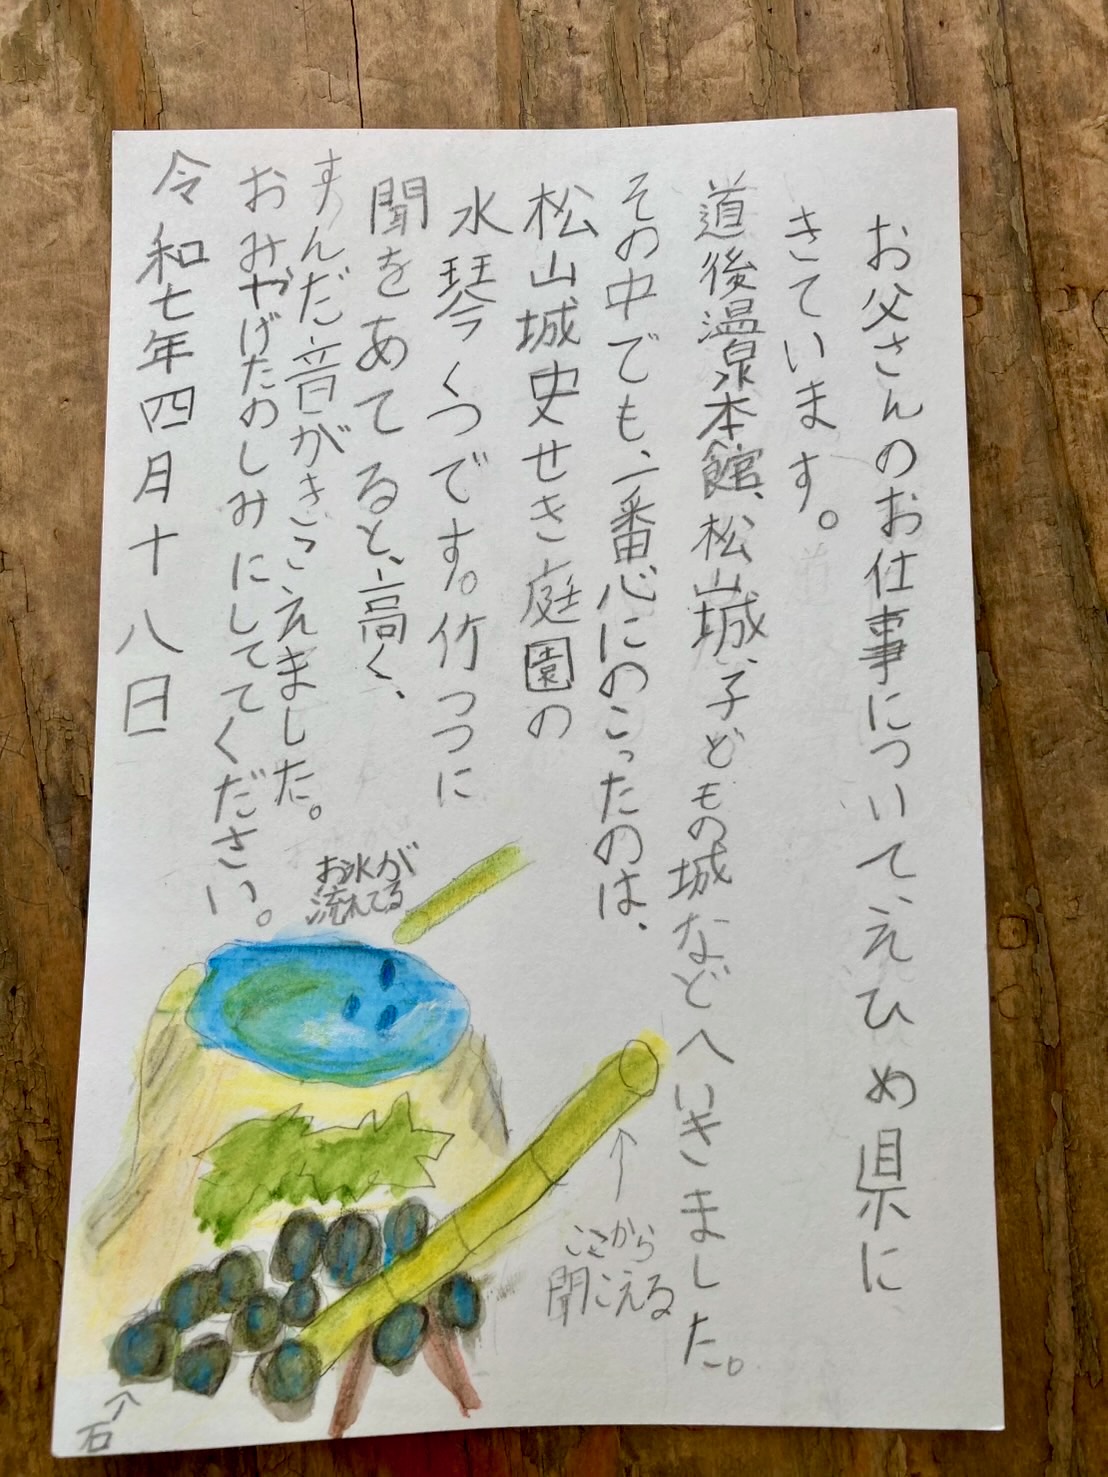 お父さんのお仕事について、えひめ県に
きています。
道後温泉本館、松山城、子どもの城などへいきました。
その中でも、一番心にのこったのは、
松山城史せき庭園の
水琴くつです。竹つつに
聞をあてると、高く、
すんだ音がきこえました。
おみやげたのしみにしててください。
令和七年四月十八日
お水が
流れてる
ここから
聞こえる
石